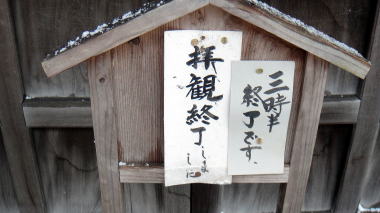 三時半
終了です、
拝観終了しま
した